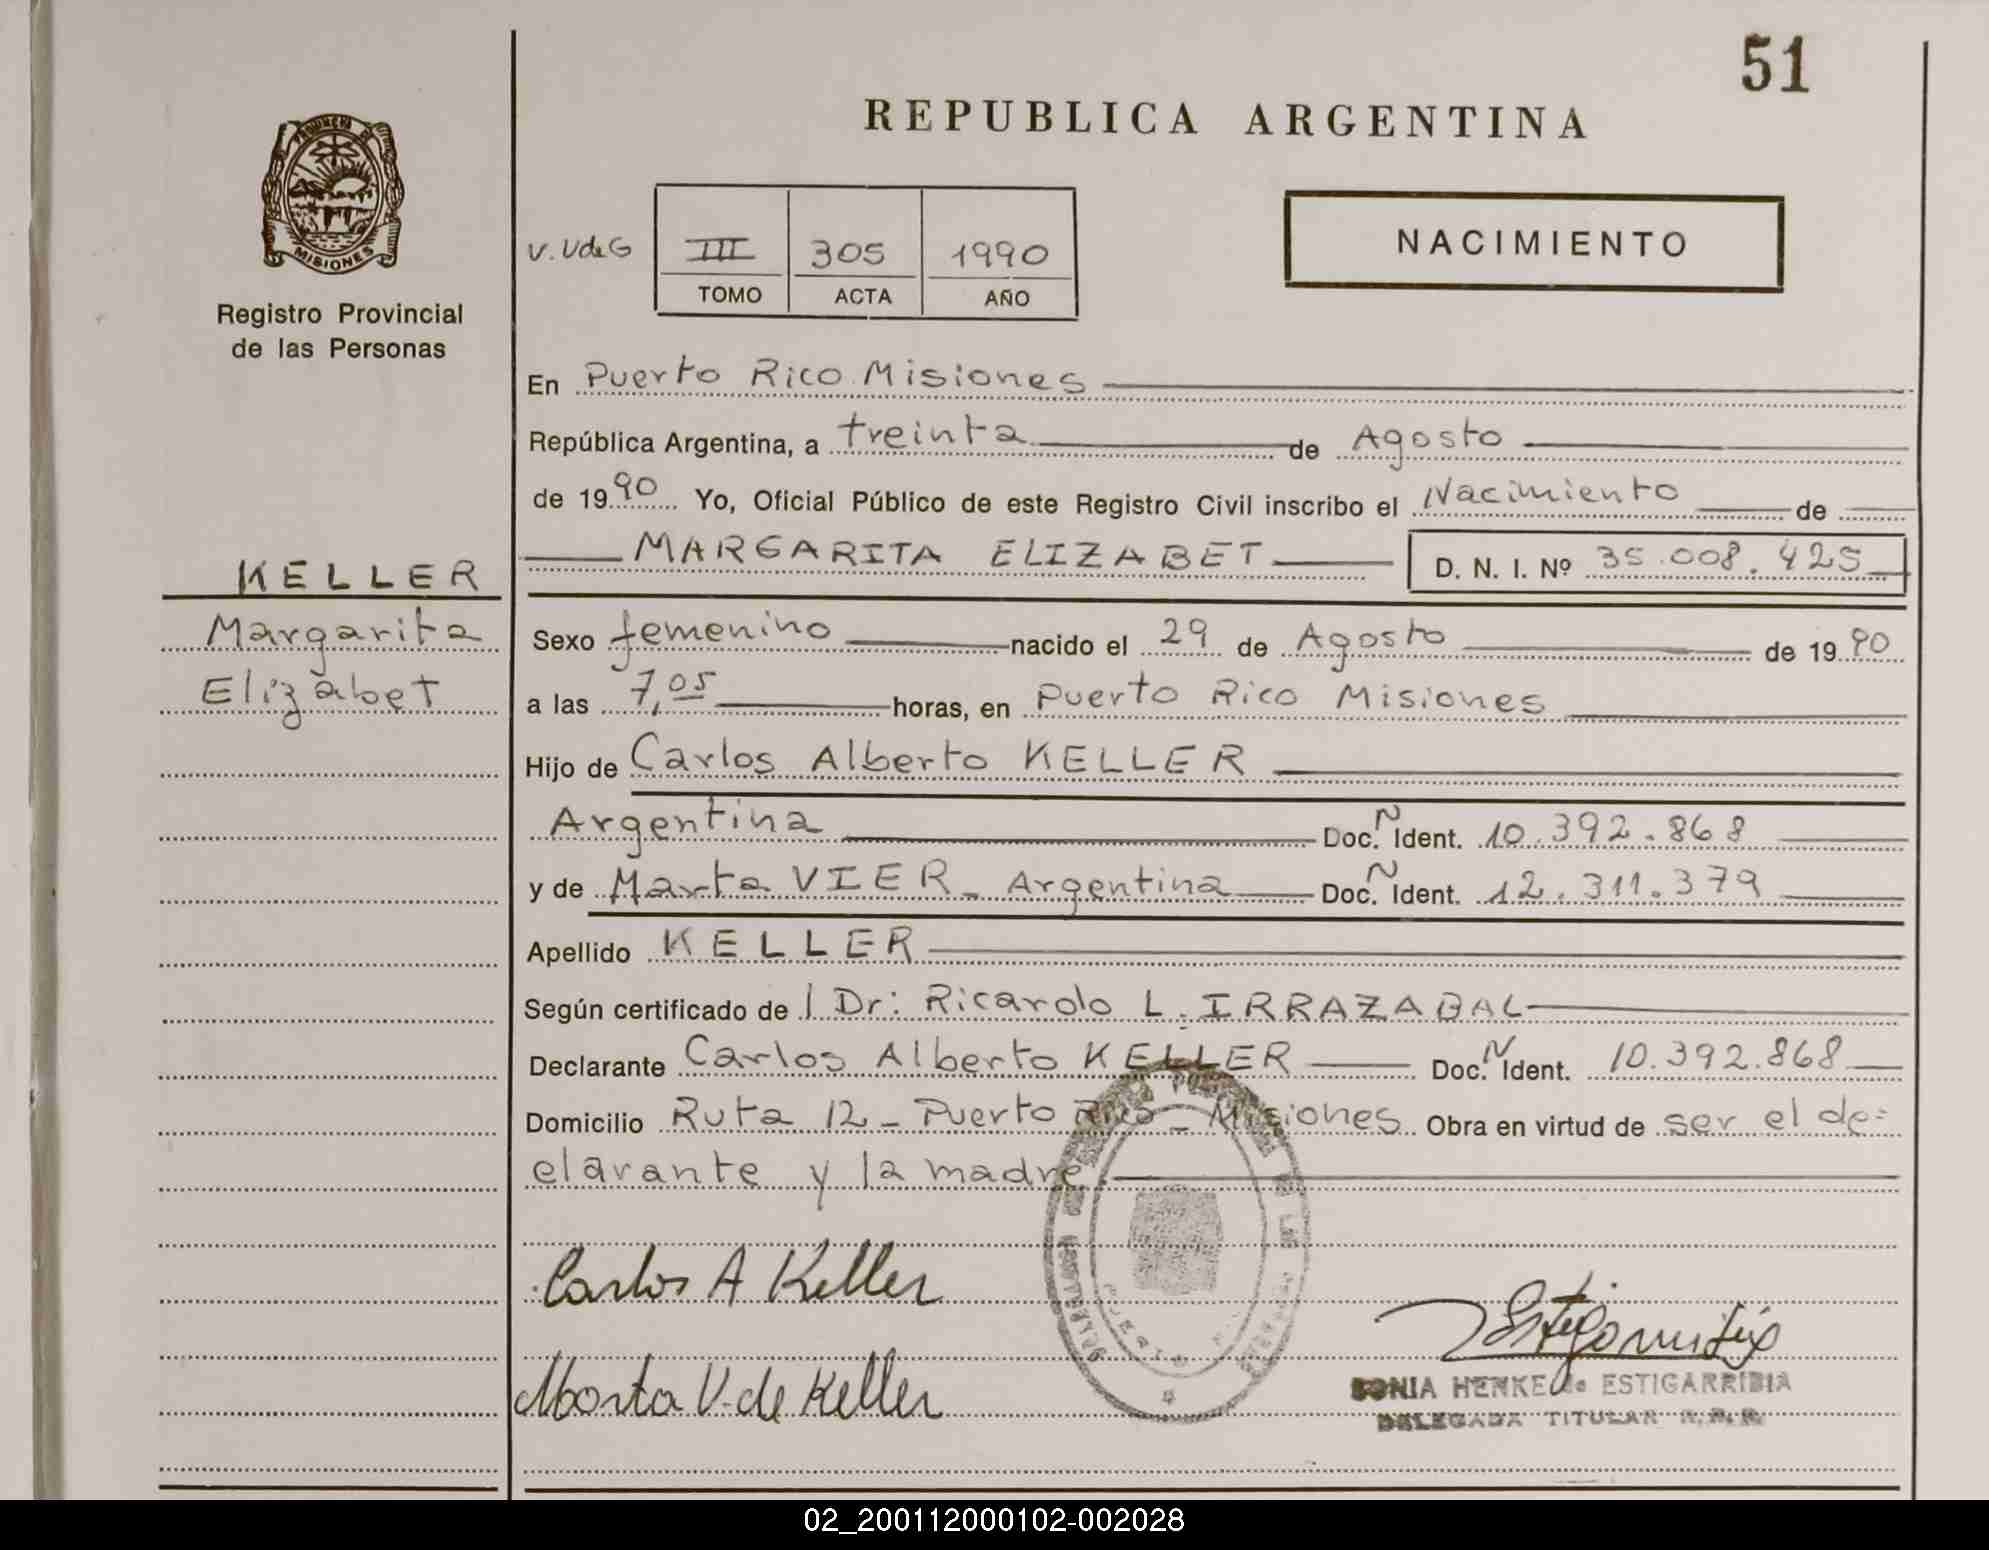 51
REPUBLICA ARGENTINA
PROVINCIA DE
MISIONES
Registro Provincial
de las Personas
V. VdeG
III 305 1990
TOMO ACTA AÑO
NACIMIENTO
En Puerto Rico Misiones
República Argentina, a treinta de Agosto
de 1990 Yo, Oficial Público de este Registro Civil inscribo el Nacimiento de
MARGARITA ELIZABET D. N. I. Nº 35.008.425
KELLER
Margarita
Elizabet
Sexo femenino nacido el 29 de Agosto de 1990
a las 7,05 horas, en Puerto Rico Misiones
Hijo de Carlos Alberto KELLER
Argentina Doc. N Ident. 10.392.868
y de Marta VIER - Argentina Doc. N Ident. 12.311.379
Apellido KELLER
Según certificado de l Dr: Ricardo L. IRRAZABAL
Declarante Carlos Alberto KELLER Doc. N Ident. 10.392.868
Domicilio Ruta 12 - Puerto Rico - Misiones Obra en virtud de ser el de=
clarante y la madre
Carlos A Keller
Marta V. de Keller
SONIA HENKE de ESTIGARRIBIA
DELEGADA TITULAR R.P.P.
02_200112000102-002028